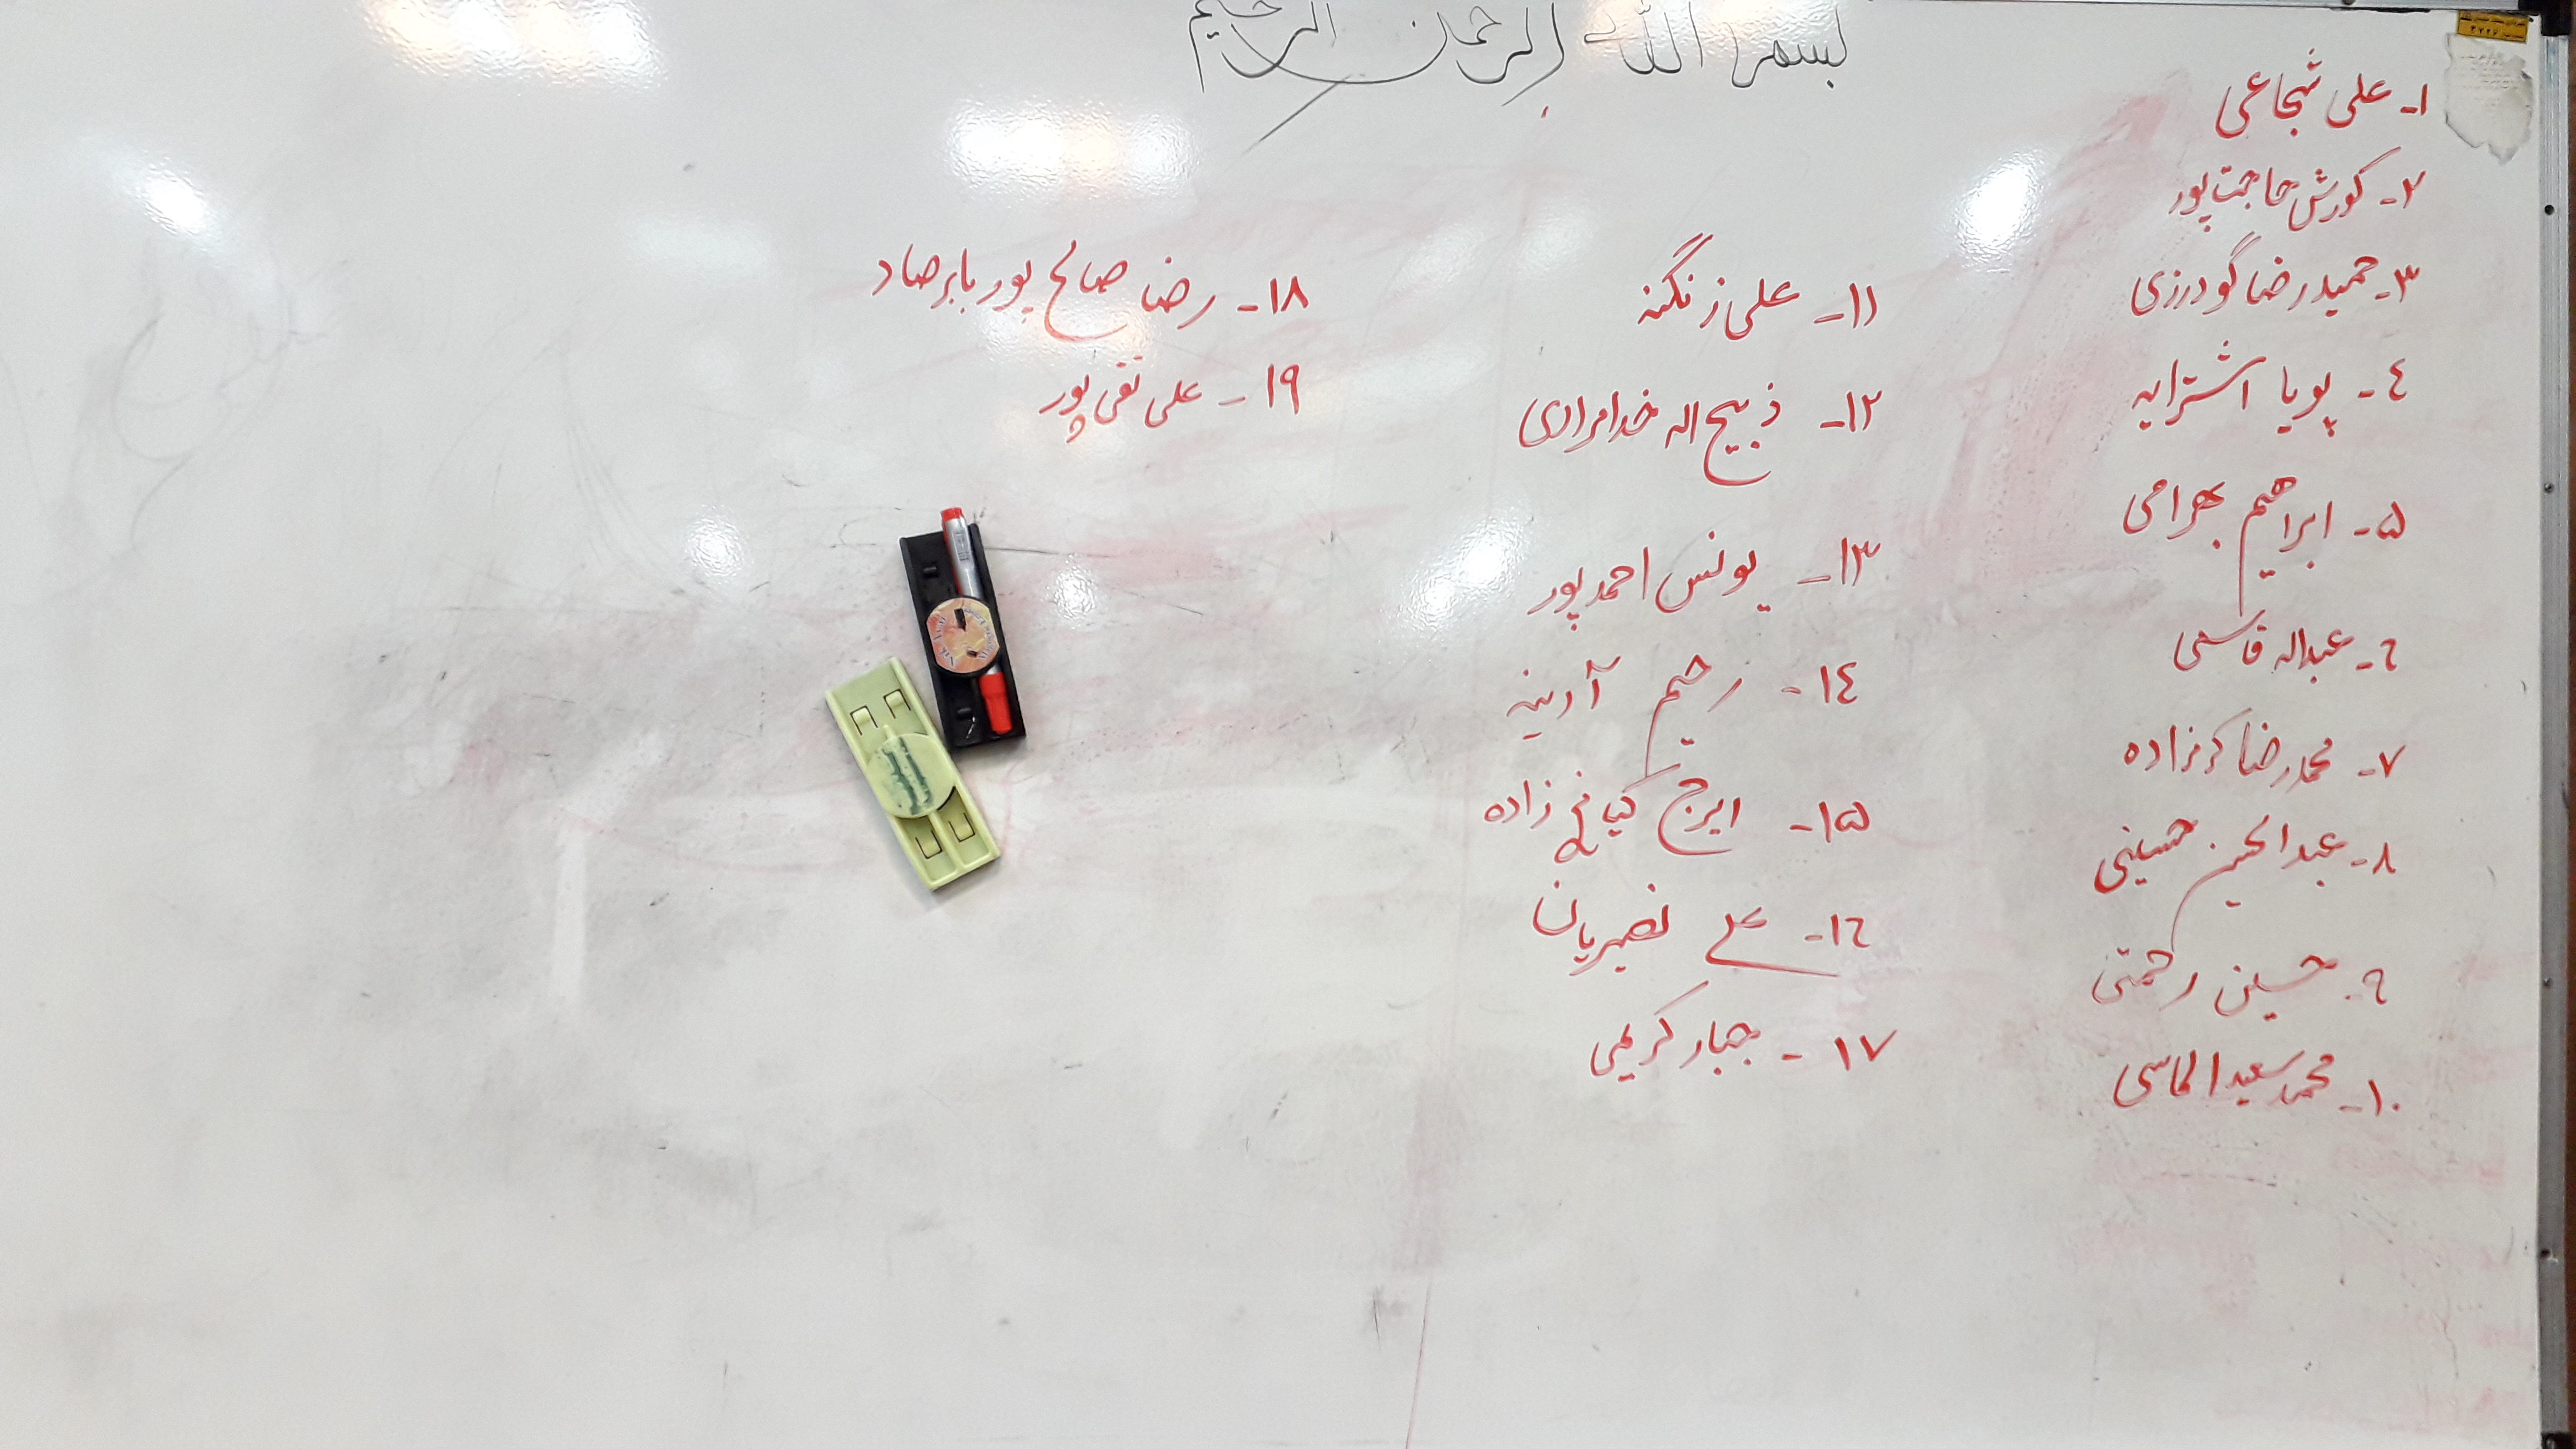 بسم الله الرحمن الرحیم
۱- علی شجاعی
۲- کورش حاجت پور
۳- حمیدرضا گودرزی
٤- پویا اشترایه
۵- ابراهیم بهرامی
٦- عبداله قاسمی
۷- محمدرضا کرمزاده
۸- عبدالحسین حسینی
۹- حسین رحمتی
۱۰- محمدسعید الماسی
۱۱- علی زنگنه
۱۲- ذبیح اله خدامرادی
۱۳- یونس احمدپور
۱٤- رحیم آدینه
۱۵- ایرج کیانی زاده
۱٦- علی نصیریان
۱۷- جبار کریمی
۱۸- رضا صالح پور بابرصاد
۱۹- علی نقی پور